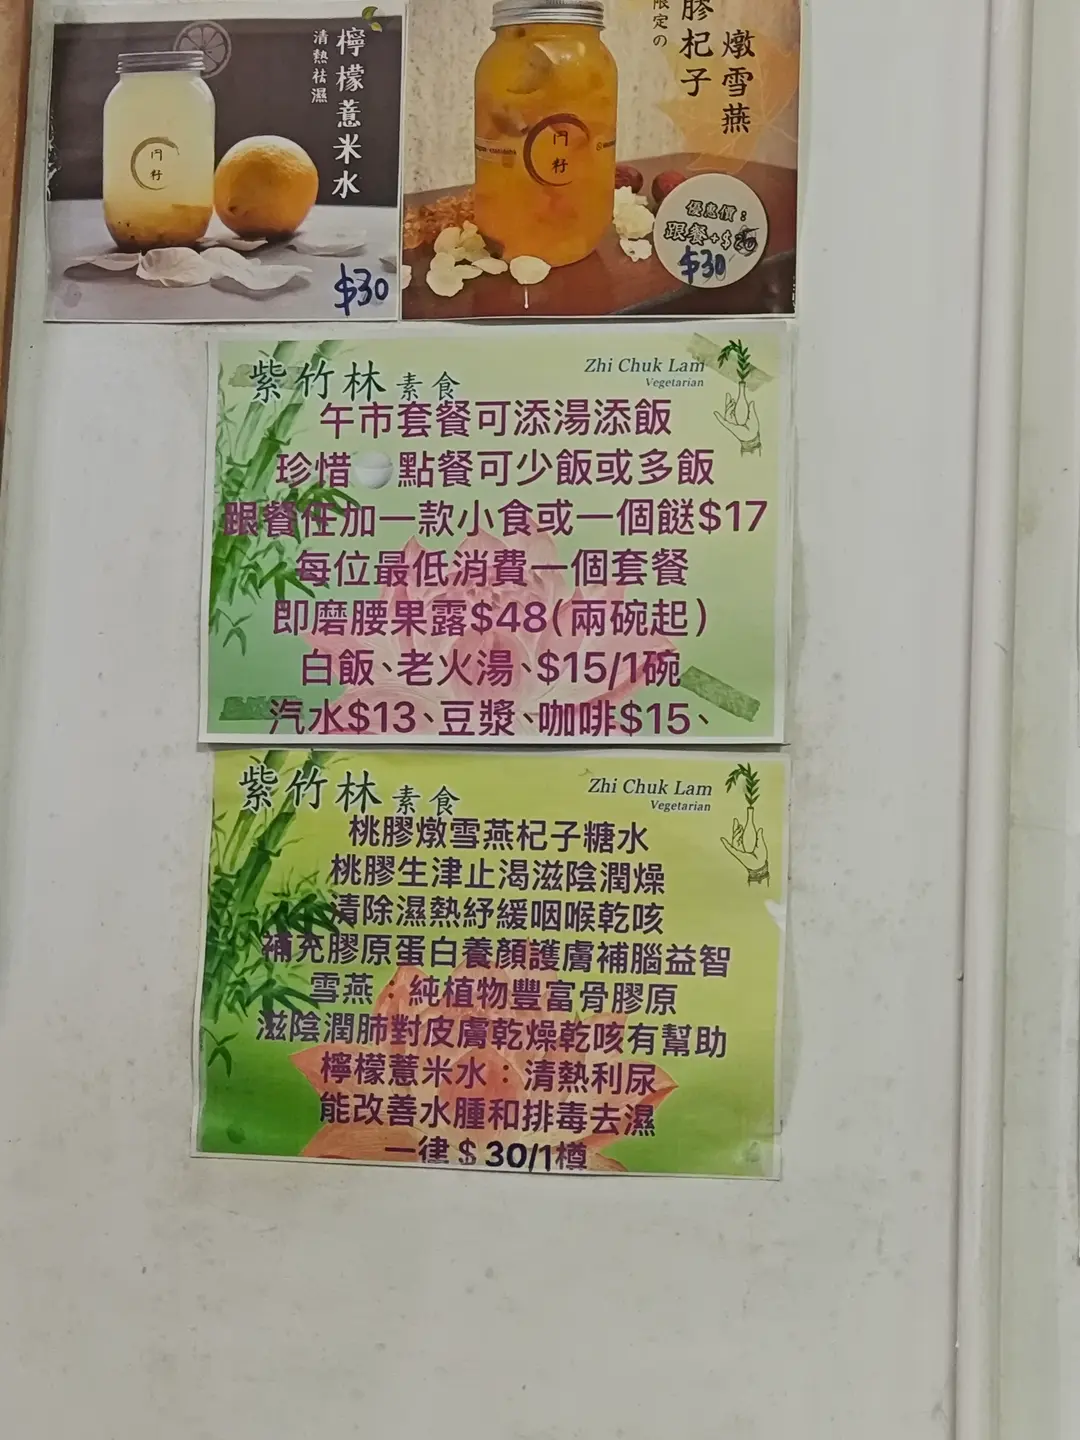 檸檬薏米水
清熱祛濕
円籽
$30
限定の
膠杞子
燉雪燕
円籽
優惠價：
跟餐+$
$30
紫竹林素食
Zhi Chuk Lam
Vegetarian
午市套餐可添湯添飯
珍惜🍚點餐可少飯或多飯
跟餐任加一款小食或一個餸$17
每位最低消費一個套餐
即磨腰果露$48(兩碗起)
白飯、老火湯、$15/1碗
汽水$13、豆漿、咖啡$15、
紫竹林素食
Zhi Chuk Lam
Vegetarian
桃膠燉雪燕杞子糖水
桃膠生津止渴滋陰潤燥
清除濕熱紓緩咽喉乾咳
補充膠原蛋白養顏護膚補腦益智
雪燕：純植物豐富骨膠原
滋陰潤肺對皮膚乾燥乾咳有幫助
檸檬薏米水：清熱利尿
能改善水腫和排毒去濕
一律$30/1樽